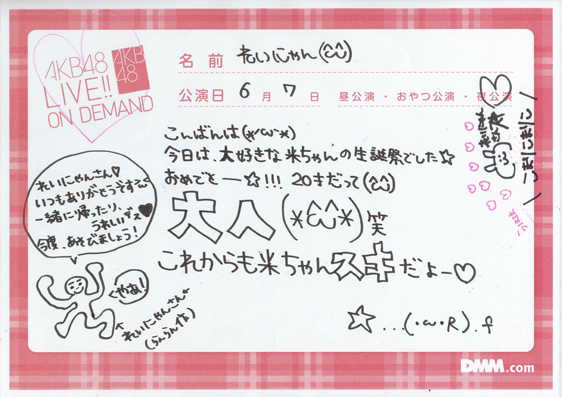 AKB48
LIVE!!
ON DEMAND
AKB
48
名前 れいにゃん(^ω^)
公演日 6月7日 昼公演・おやつ公演・夜公演
こんばんは(*^ω^*)
今日は、大好きな米ちゃんの生誕祭でした☆
おめでとー☆!!! 20才だって(^ω^)
大人(*^ω^*)笑
これからも米ちゃんスキだよー♡
☆...(・ω・R).f
れいにゃんさん♡
いつもありがとうです
一緒に帰ったり、
うれしいデス♥
今度、あそびましょう!
やぁ!
れいにゃんさん
(らんらん作)
\こまりにまりに/
DMM.com